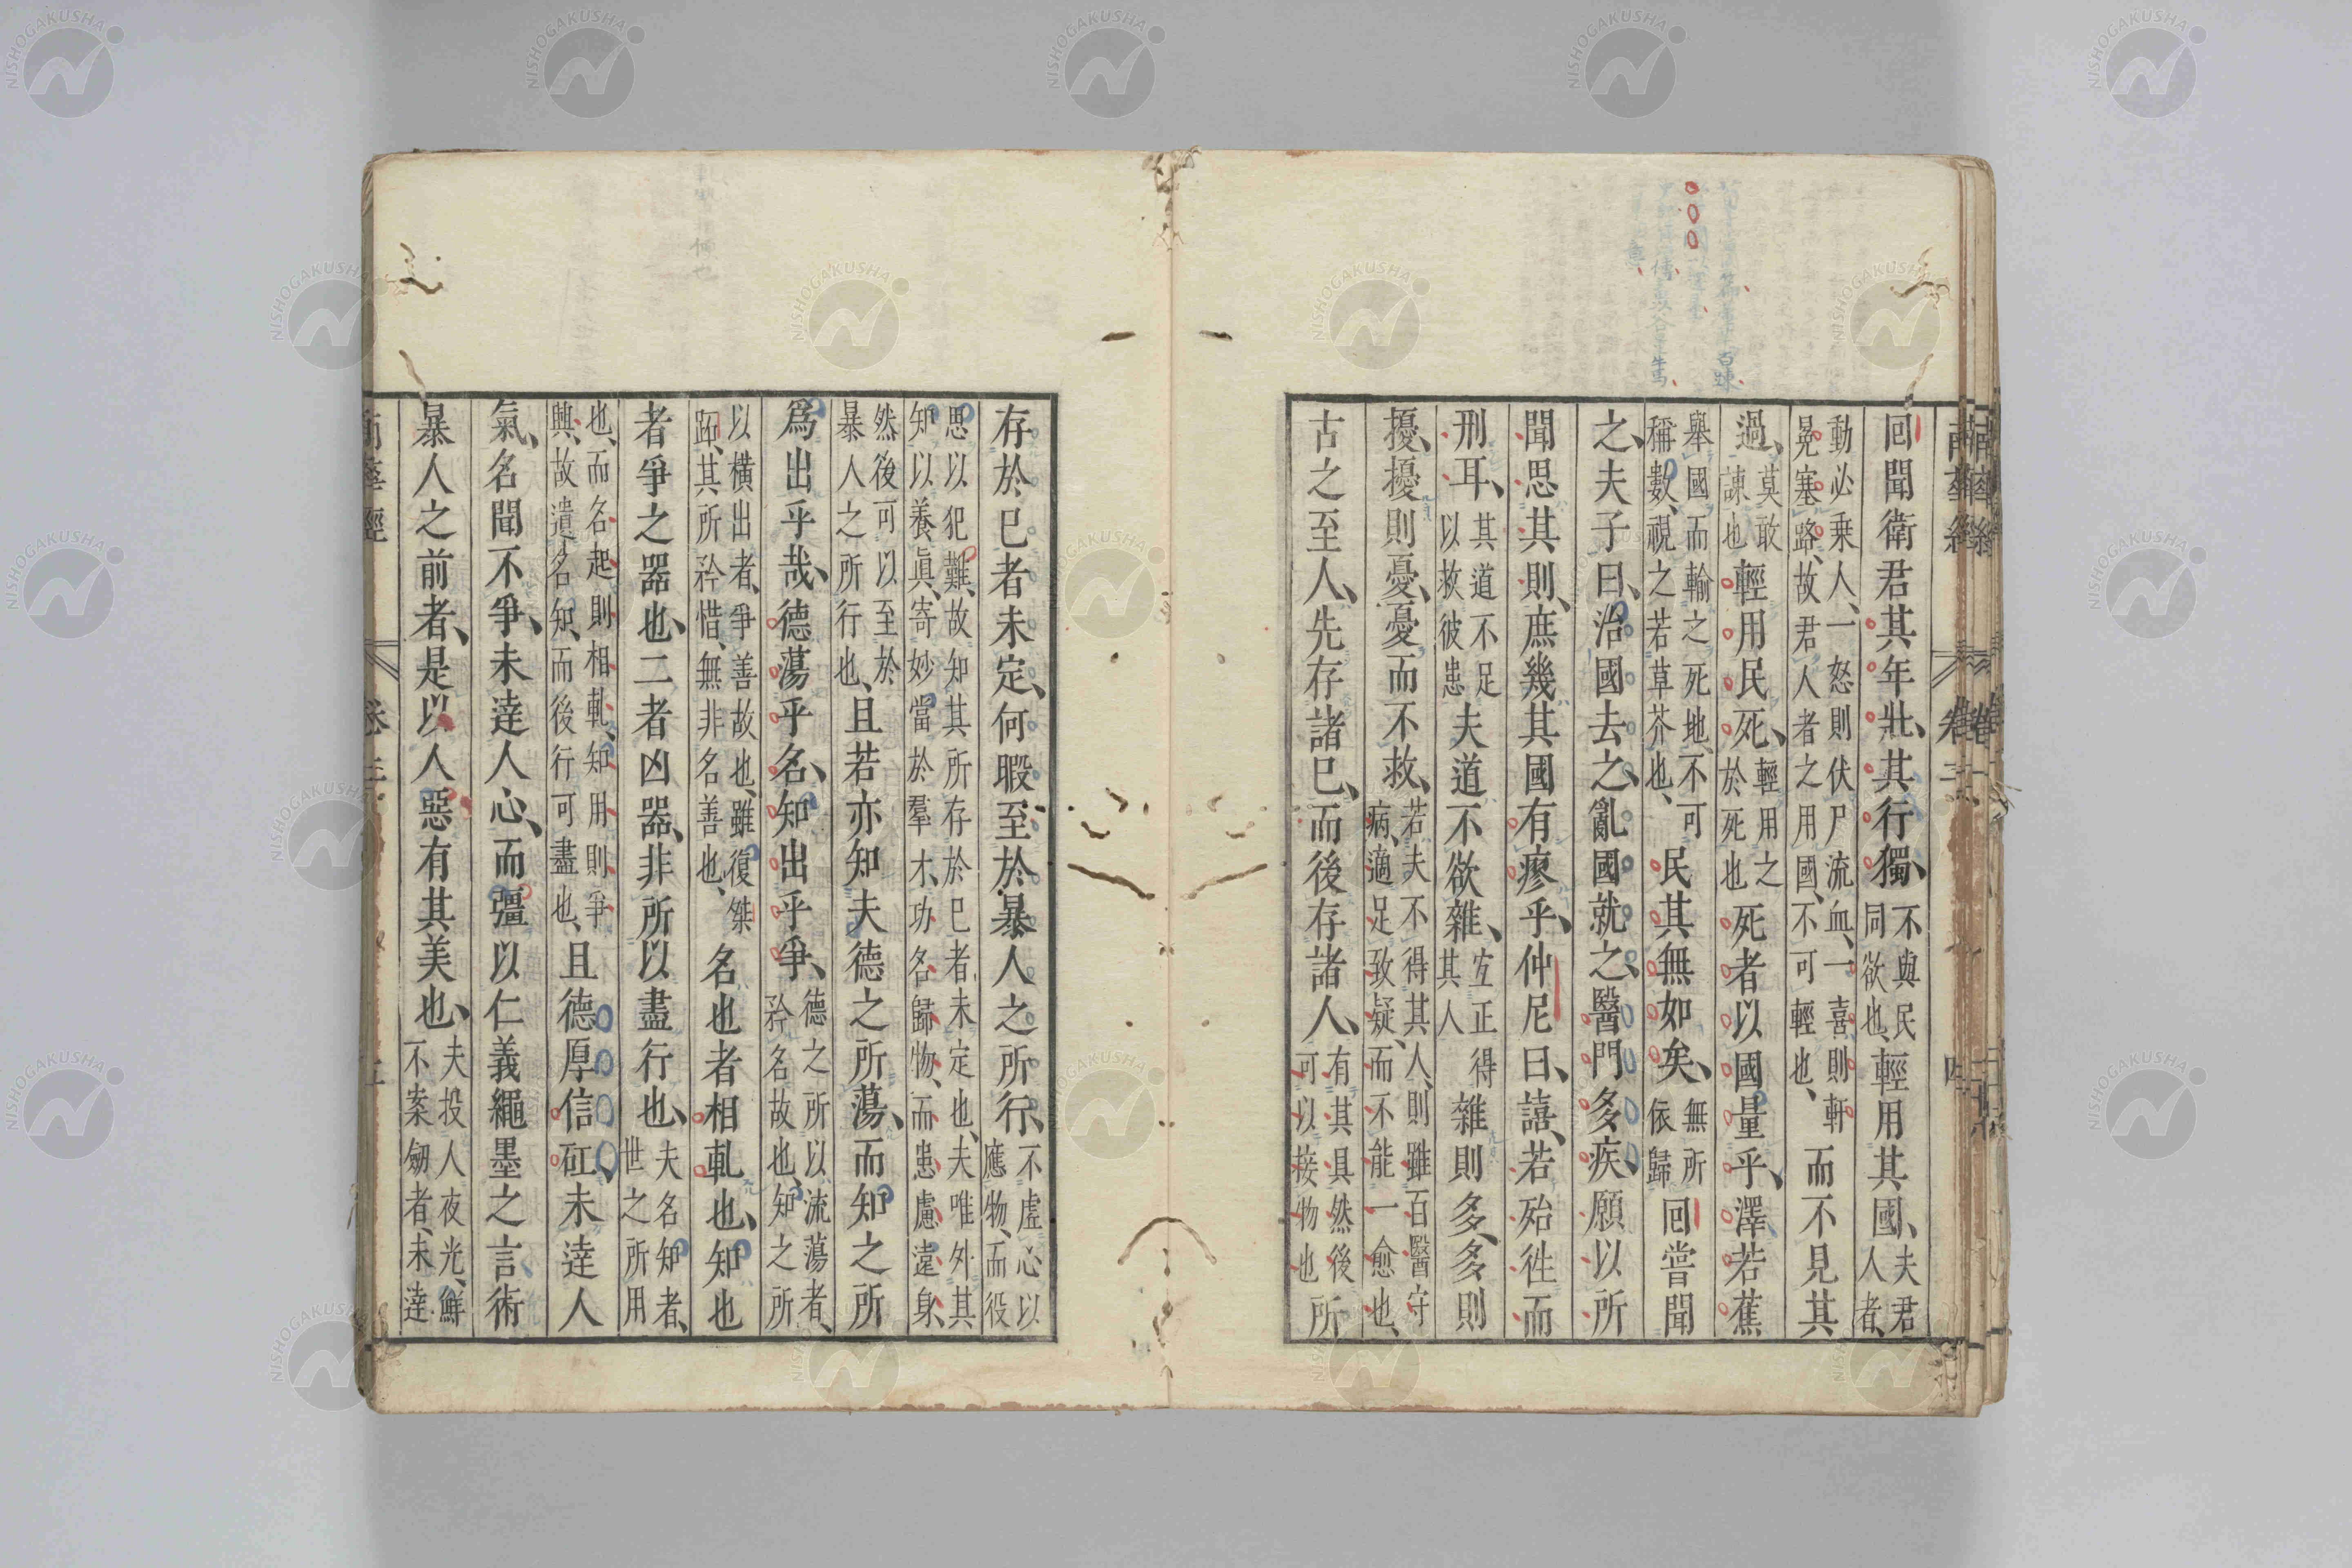 回聞衛君其年壯、其行獨、不與民同欲也、輕用其國、夫君人者、
動必乗人、一怒則伏尸流血、一喜則軒冕塞路、故君人者之用國、不可輕也、而不見其
過、莫敢諫也輕用民死、輕用之於死也死者以國量乎、澤若蕉
舉國而輸之死地、不可稱數、視之若草芥也、民其無如矣、無所依歸回嘗聞
之、夫子曰、治國去之、亂國就之、醫門多疾、願以所
聞思其則、庶幾其國有瘳乎、仲尼曰、譆、若殆徃而
刑耳、其道不足以救彼患夫道不欲雜、宜正得其人雜則多、多則
擾、擾則憂、憂而不救、若夫不得其人、則雖百醫守病、適足致疑、而不能一愈也、
古之至人、先存諸已、而後存諸人、有其具然後可以接物也所
存於已者未定、何暇至於暴人之所行、不虛心以應物、而役
思以犯難、故知其所存於已者、未定也、夫唯外其知以養眞、寄妙當於羣才、功名歸物、而患慮遠身、
然後可以至於暴人之所行也、且若亦知夫德之所蕩、而知之所
爲出乎哉、德蕩乎名、知出乎爭、德之所以流蕩者、矜名故也、知之所
以橫出者、爭善故也、雖復桀跖、其所矜惜、無非名善也、名也者相軋也、知也
者爭之器也、二者凶器、非所以盡行也、夫名知者、世之所用
也、而名起則相軋、知用則爭興、故遺名知、而後行可盡也、且德厚信矼、未逹人
氣、名聞不爭、未逹人心、而彊以仁義繩墨之言術
暴人之前者、是以人惡有其美也、夫投人夜光、鮮不案劒者、未逹